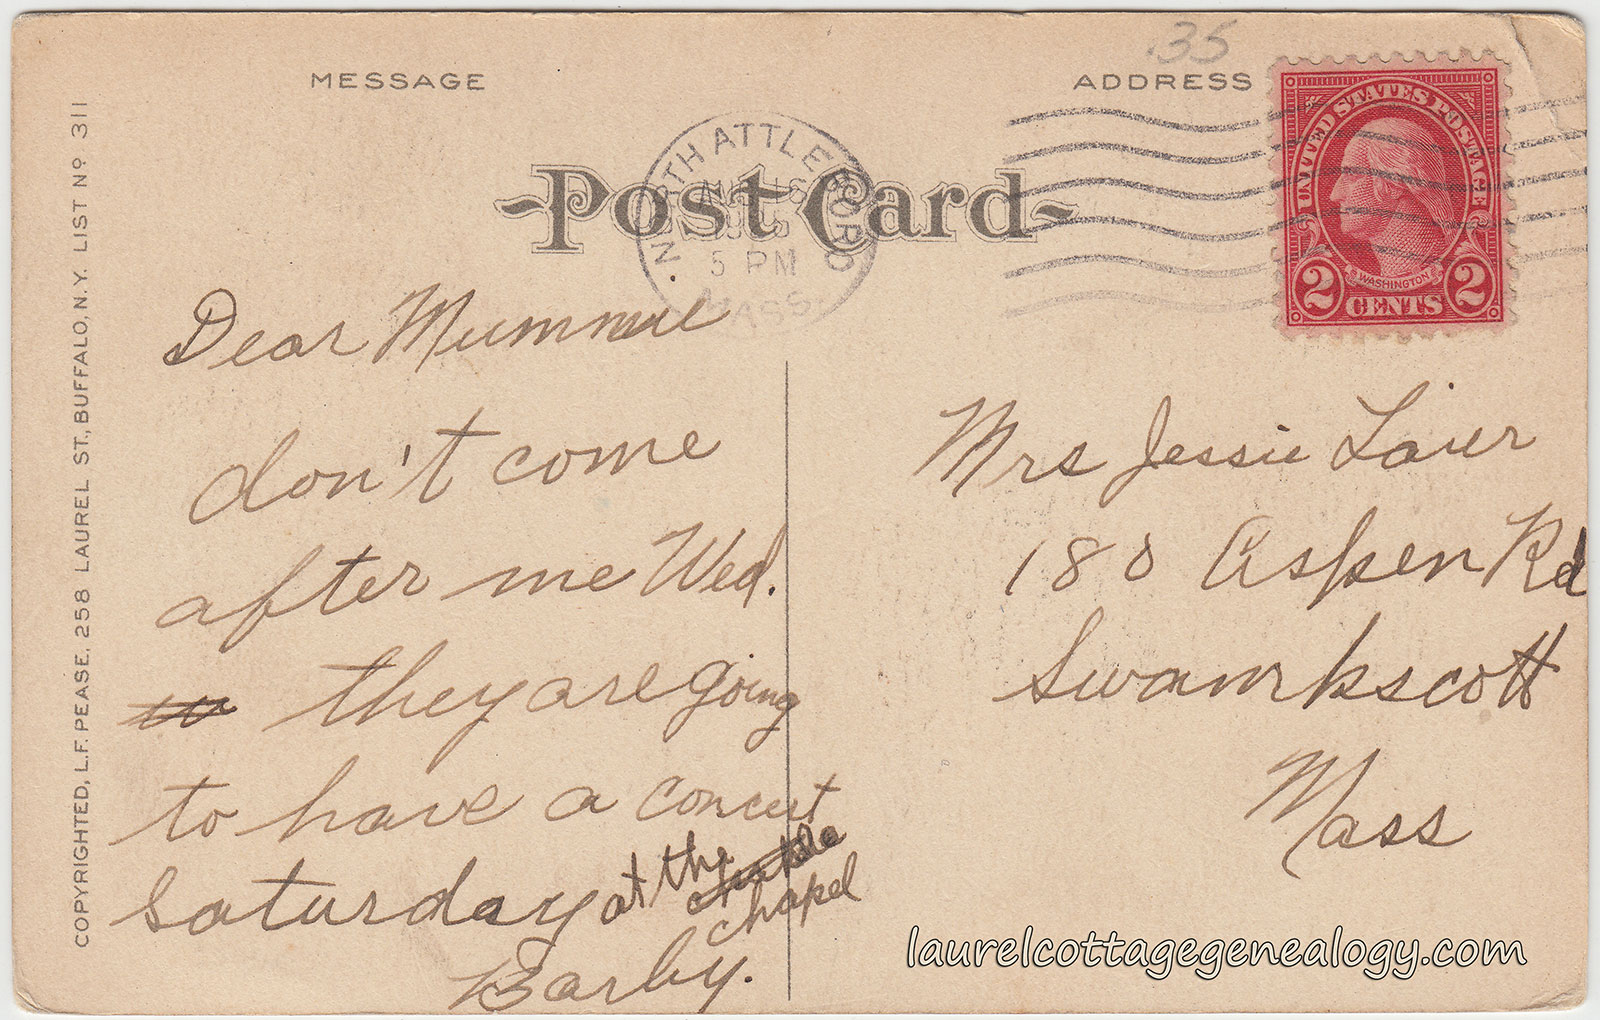 MESSAGE
ADDRESS
.35
Post Card
NORTH ATTLEBORO
AUG 16
5 PM
MASS.
UNITED STATES POSTAGE
WASHINGTON
2 CENTS 2
COPYRIGHTED, L.F. PEASE, 258 LAUREL ST., BUFFALO, N.Y. LIST Nº 311
Dear Mummie
don't come
after me Wed.
they are going
to have a concert
saturday at the
chapel
Barby.
Mrs Jessie
180 Aspen Rd
Swamkscott
Mass
laurelcottagegenealogy.com